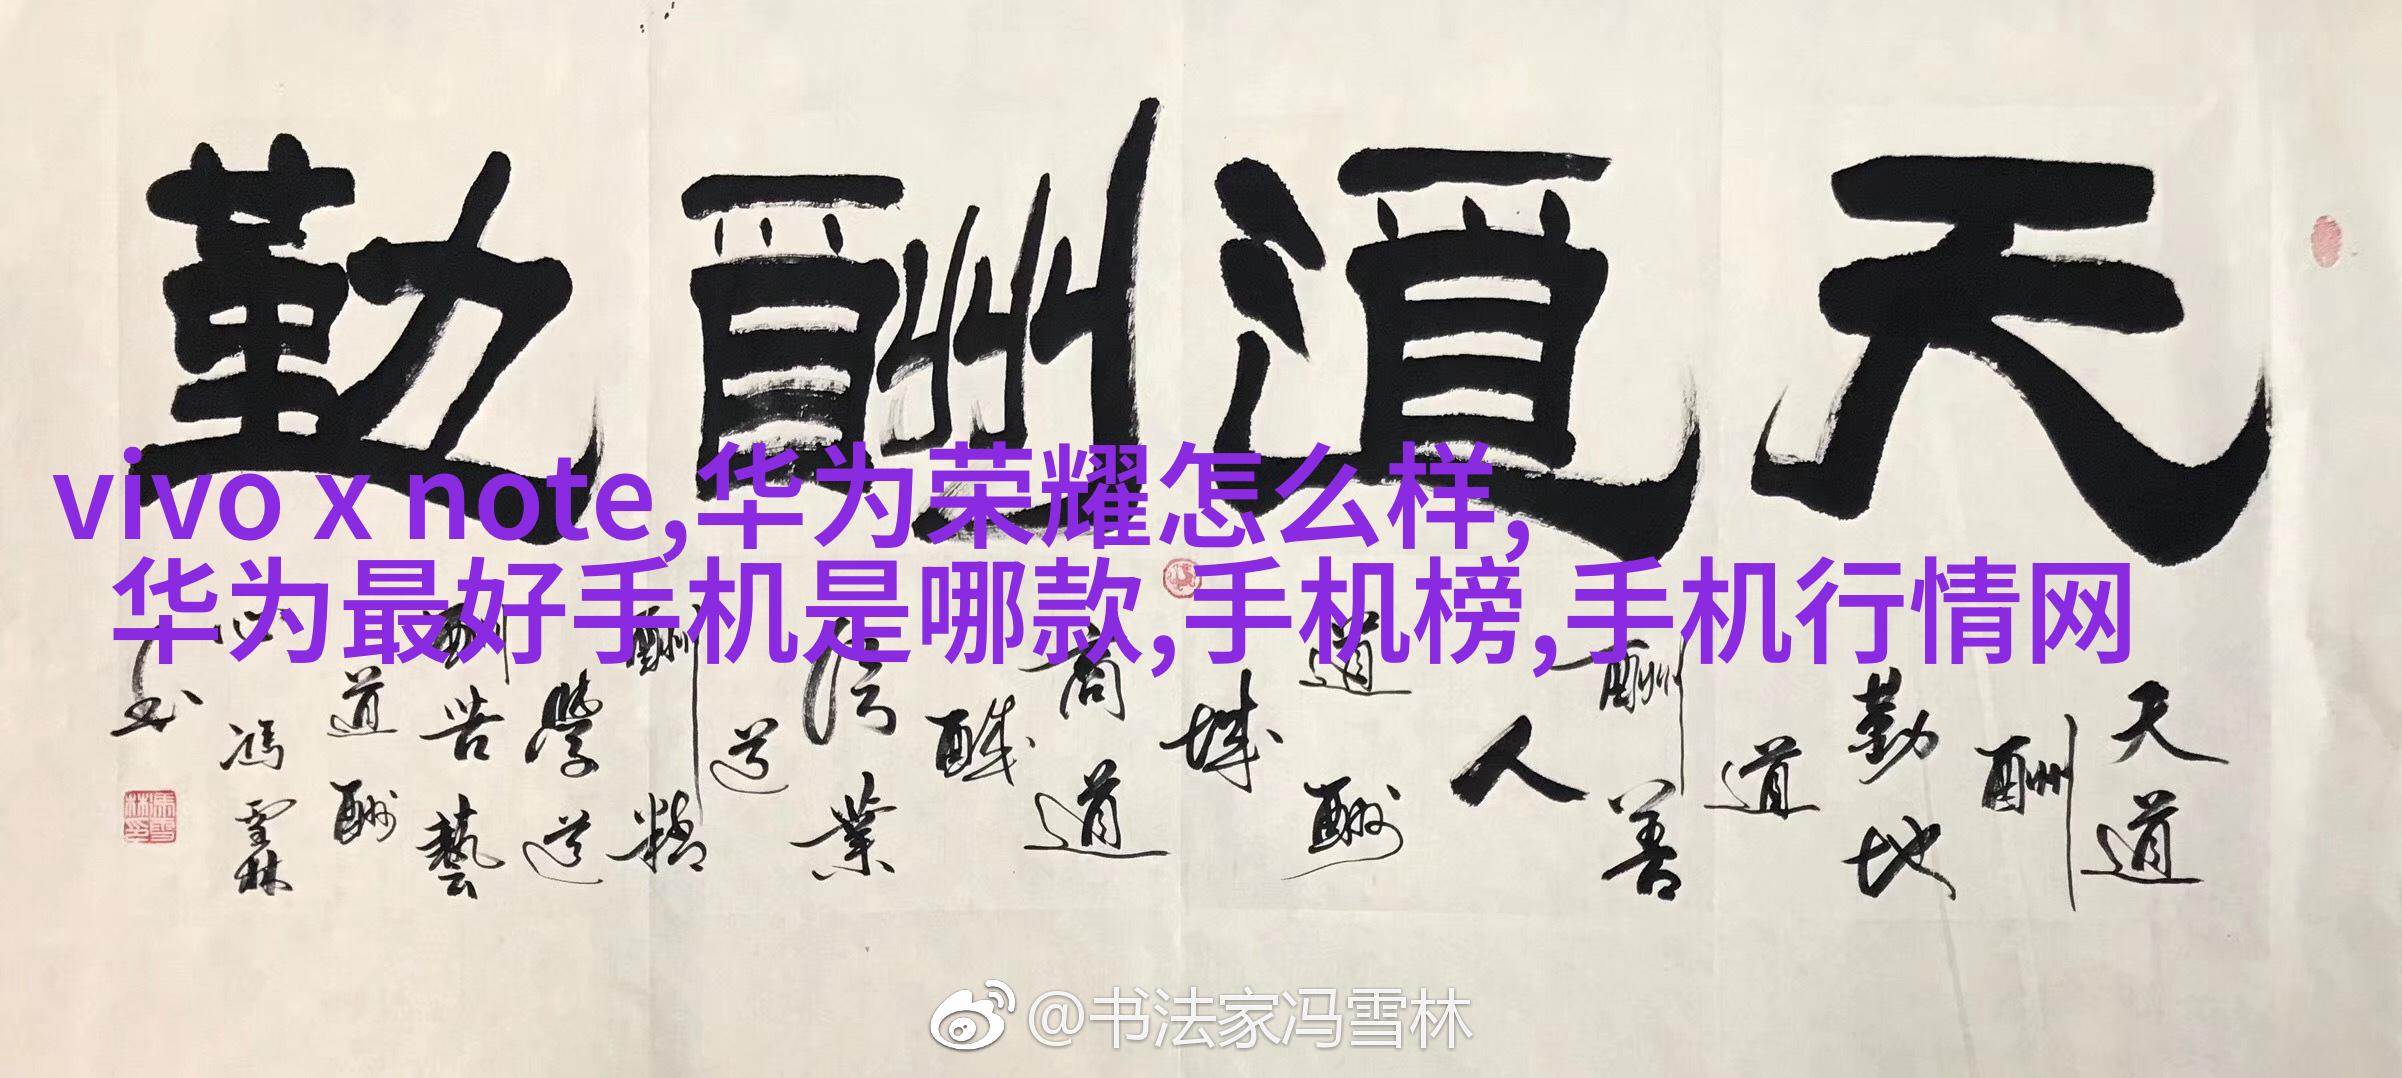 天道酬勤
vivo x note,华为荣耀怎么样,
华为最好手机是哪款,手机榜,手机行情网
天道
酬
勤地
道
酬善
人
道酬
诚
商道
酬
信業
道
酬精
學道
酬苦藝
道酬
心馮雪林
书
@书法家冯雪林